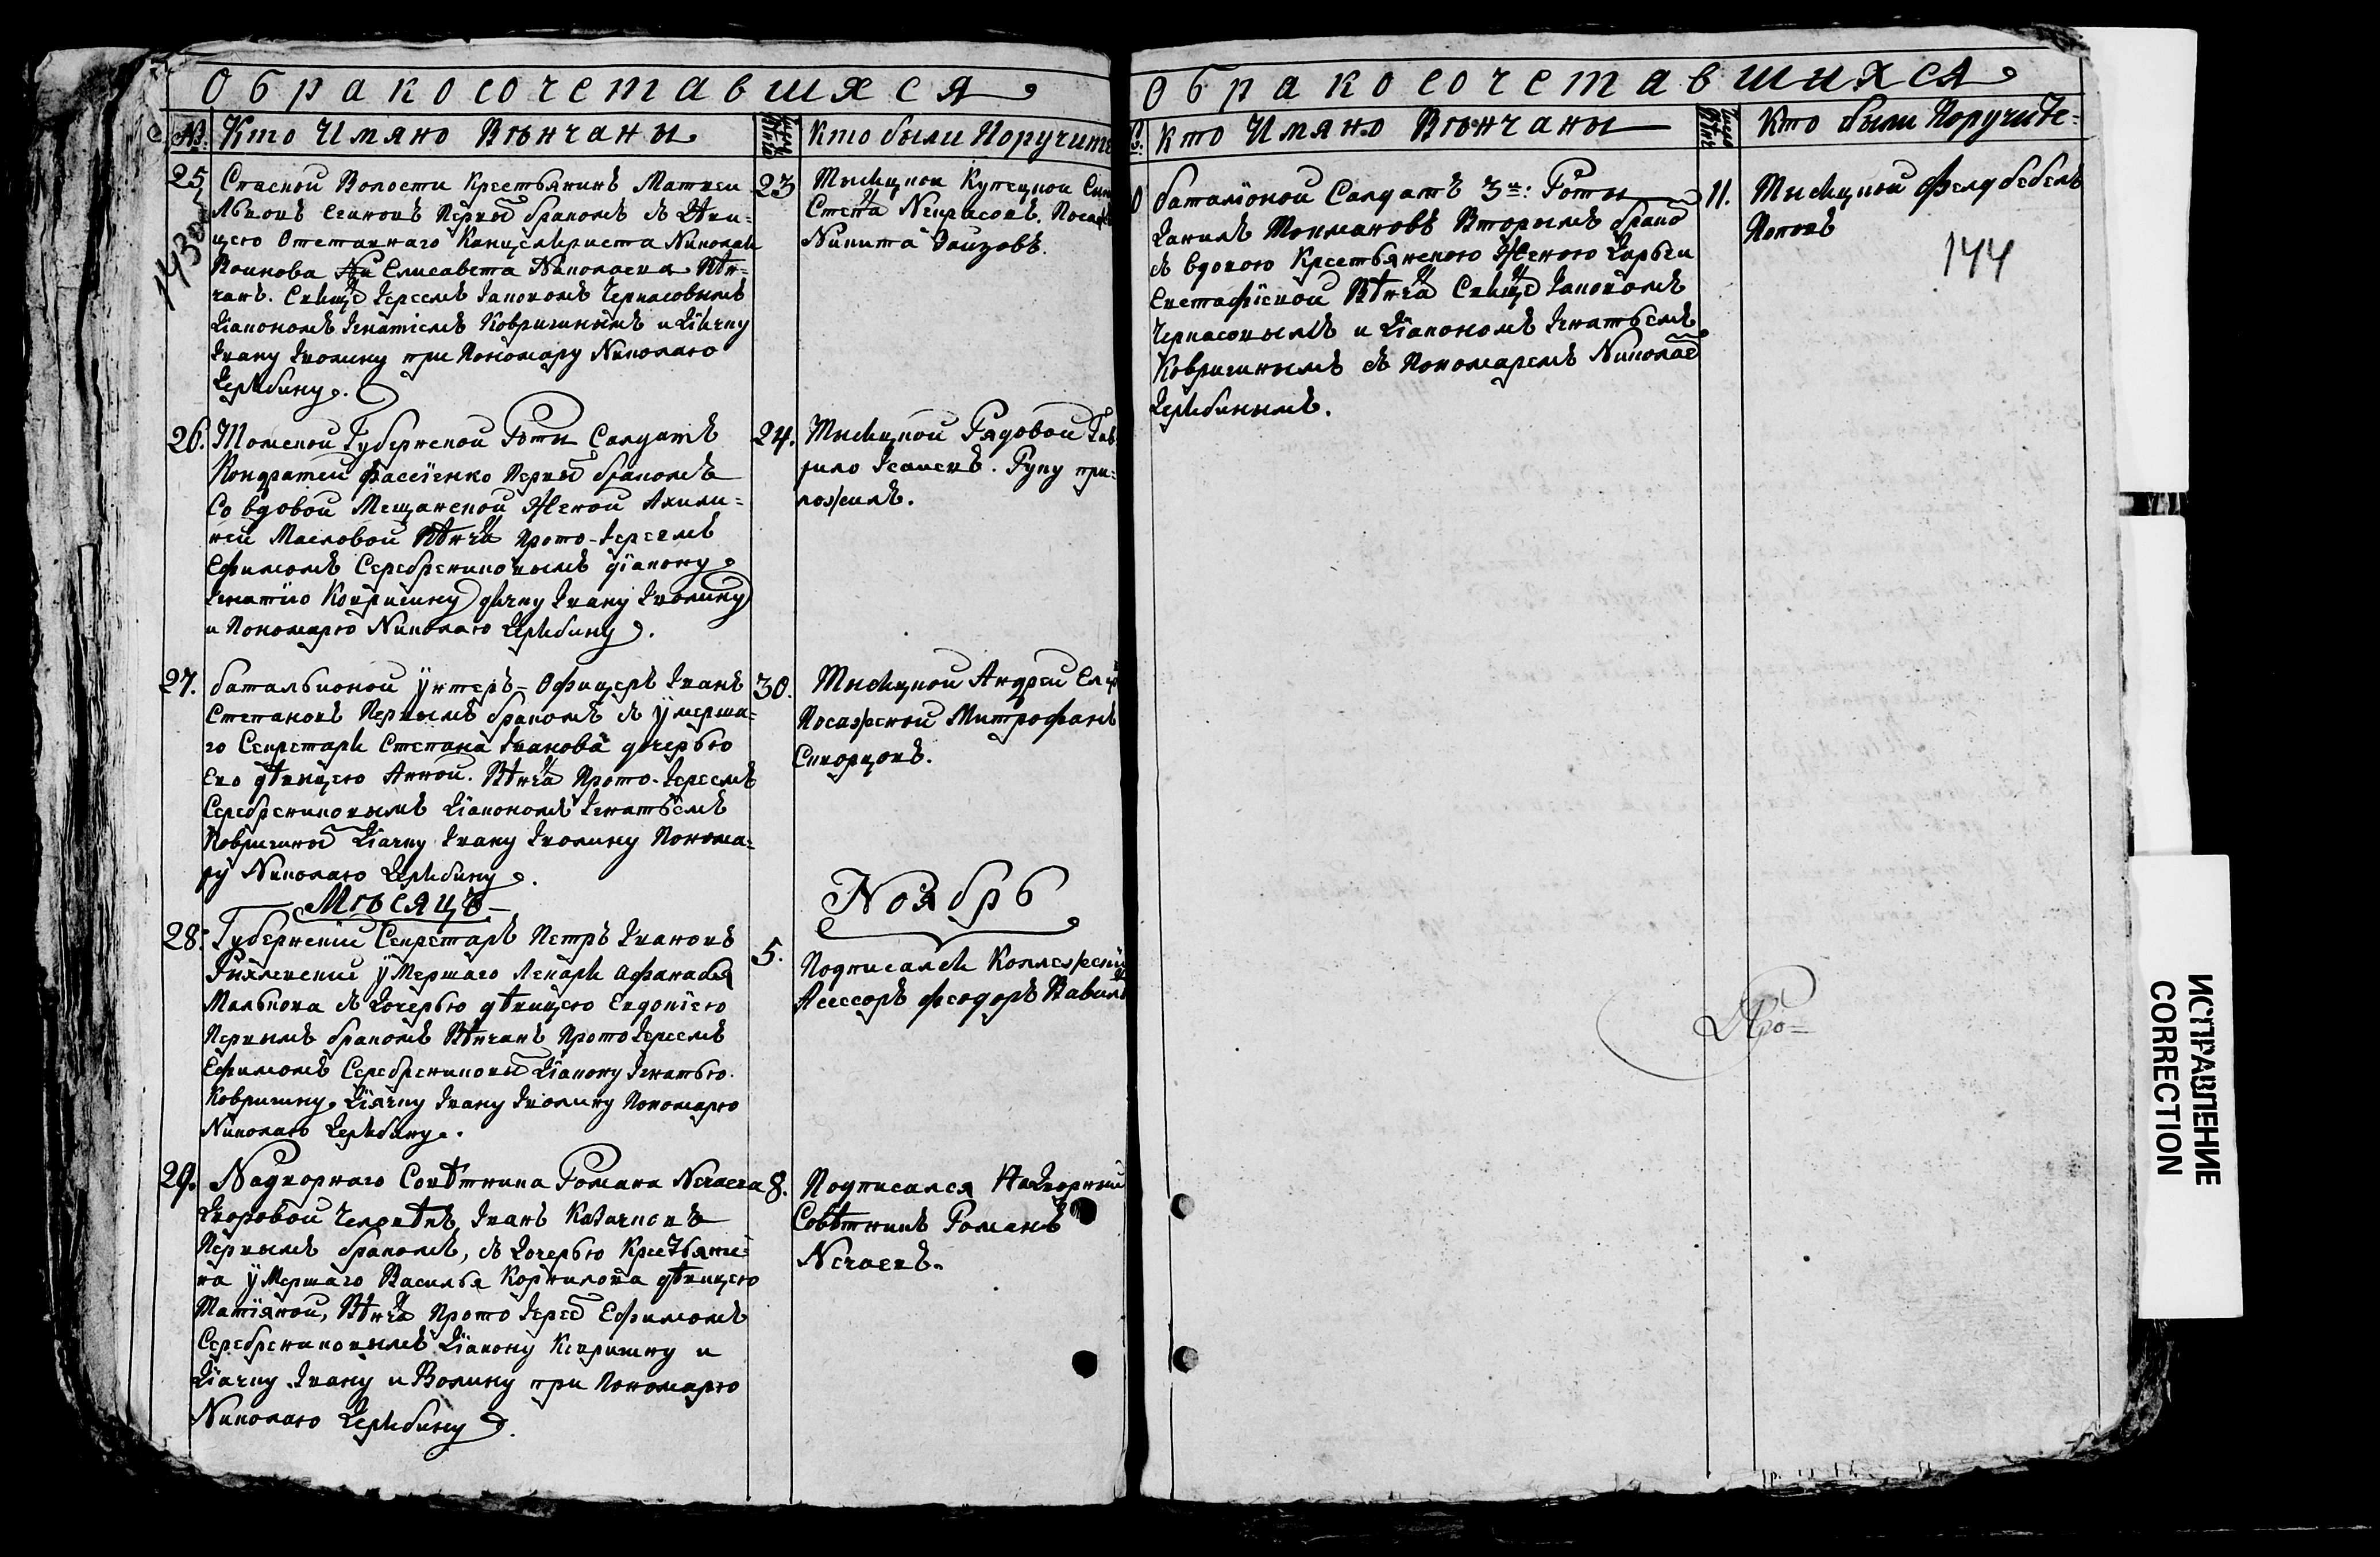 О бракосочетавшихся
№. Кто Имяно Вѣнчаны
Кто были Поручите
25
Спаской Волости Крестьянинъ Матвеи
Львовъ Сениовъ Первы бракомъ съ Дѣви-
цею Отставнаго Канцеляриста Николая
Воинова Елисавета Николаева Вѣн-
чанъ. Свяще Іереемъ Іаковомъ Черкасовымъ
Діакономъ Игнатіемъ Ковригинымъ и Дьячку
Ивану Иволину при Пономару Николаю
Дерябину.
1430
23
Тысяцкой Купецкой Сы
Степа Некрасовъ. Посаж
Никита Заизовъ.
26.
Томской Губернской Роты Салдатъ
Кондратей Фассіенко Первы бракомъ
Со вдовой Мещанской Женой Акили-
ной Масловой Вѣнча Прото-Іереемъ
Ефимомъ Серебрениковымъ діакону
Игнатію Ковригину дьячку Ивану Иволину
и Пономарю Николаю Дерябину.
24.
Тысяцкой Рядовой Гав
рило Исаевъ. Руку при-
ложилъ.
27.
баталиионой Унтеръ-Офицеръ Иванъ
Степановъ Первымъ бракомъ съ Умерша-
го Секретаря Степана Иванова дочерью
Ево дѣвицею Анной. Вѣнча Прото-Іереемъ
Серебрениковымъ Діакономъ Игнатьемъ
Ковригины Діачку Ивану Иволину Понома-
ру Николаю Дерябину.
30.
Тысяцкой Андрей
Посаженой Митрофанъ
Скворцовъ.
Мѣсяцъ
Ноябрь
28.
Губернскіи Секретарь Петръ Ивановъ
умершаго Лекаря Афанасья
Малькова съ Дочерью дѣвицею Евдокіею
Первымъ бракомъ Вѣнчанъ Прото Іереемъ
Ефимомъ Серебрениковы Діакону Игнатью
Ковригину. Діячку Ивану Иволину Пономарю
Николаю Дерябину.
5.
Подписался Коллежскій
Асессоръ Феодоръ Вавил
29.
Надворнаго Совѣтника Романа Нечаева
Дворовой Человѣкъ, Иванъ
Первымъ бракомъ, съ Дочерью Крестьяни-
на умершаго Василья Корнилова дѣвицею
Татіяной, Вѣнча Прото Іерее Ефимомъ
Серебрениковымъ Діакону Ковригину и
Діачку Ивану и Волину при Пономарю
Николаю Дерябину.
8.
Подписался Надворный
Совѣтникъ Романъ
Нечаевъ.
О бракосочетавшихся
Кто Имяно Вѣнчаны
Кто были Поручите-
0
баталіоной Салдатъ 3й: Роты
Данилъ Токмаковъ Вторымъ брако
съ вдовою Крестьянскою Женою Дарьеи
Евстафіевой Вѣнча Свяще Іаковомъ
Черкасовымъ и Діакономъ Игнатьемъ
Ковригинымъ съ Пономаремъ Николае
Дерябинымъ.
11.
Тысяцкой Фелдфебель
Поповъ
144
ИСПРАВЛЕНИЕ
CORRECTION